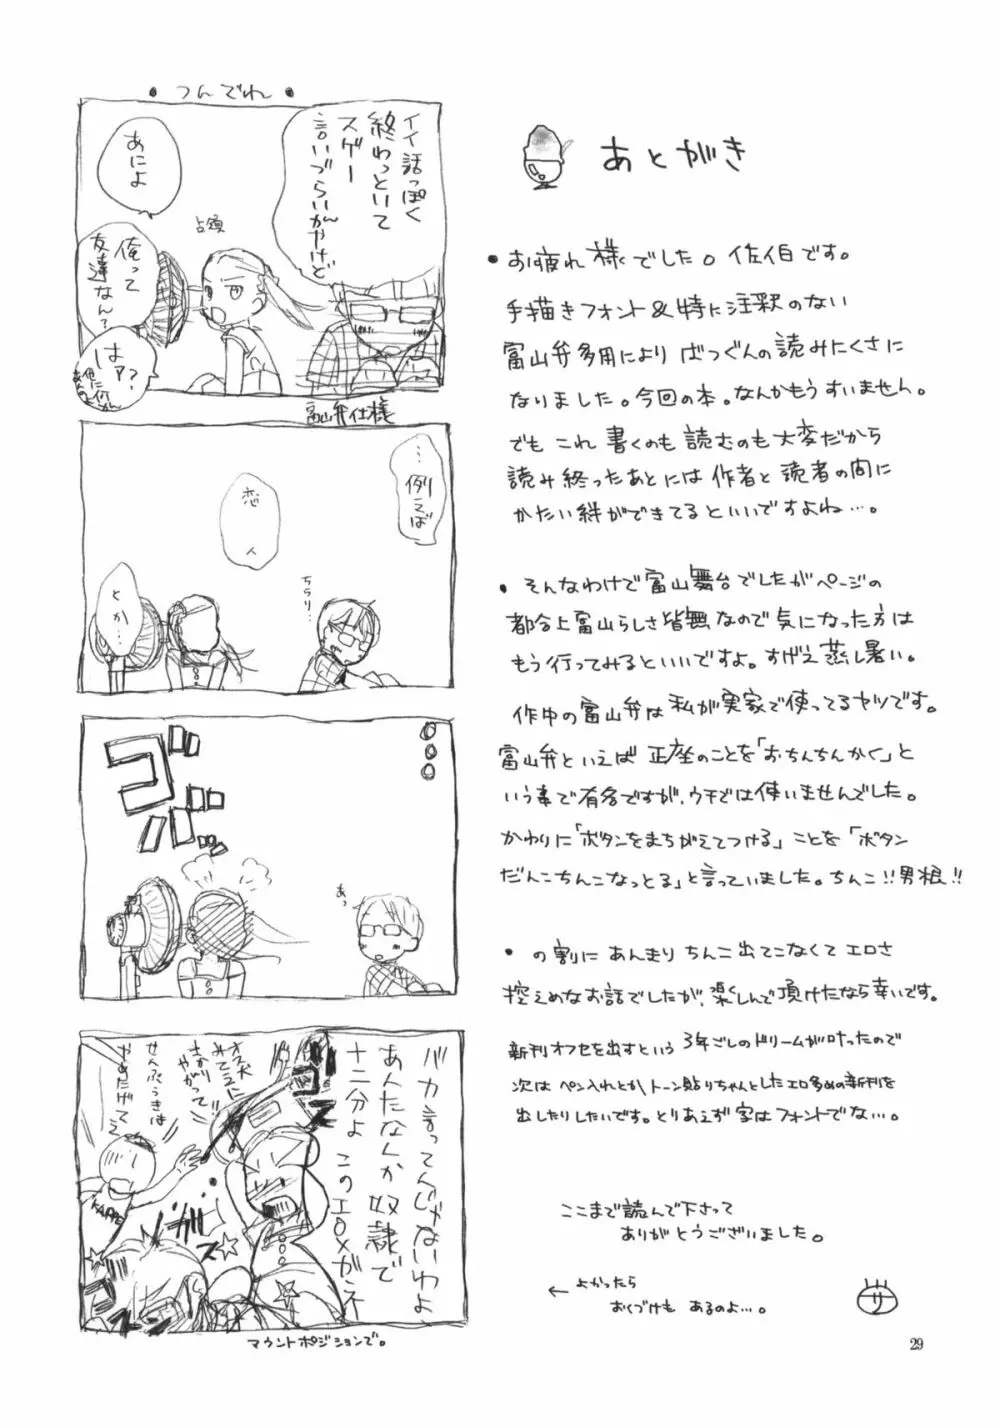 あとがき
・お疲れ様でした。佐伯です。
手描きフォント&特に注釈のない
富山弁多用によりばつぐんの読みにくさに
なりました。今回の本。なんかもうすいません。
でもこれ書くのも読むのも大変だから
読み終ったあとには作者と読者の間に
かたい絆ができてるといいですよね…。
・そんなわけで富山舞台でしたがページの
都合上富山らしさ皆無なので気になった方は
もう行ってみるといいですよ。すげえ蒸し暑い。
作中の富山弁は私が実家で使ってるヤツです。
富山弁といえば正座のことを「おちんちんかく」と
いう事で有名ですが、ウチでは使いませんでした。
かわりに「ボタンをまちがえてつける」ことを「ボタン
だんこちんこなっとる」と言っていました。ちんこ!!男根!!
・の割にあんまりちんこ出てこなくてエロさ
控えめなお話でしたが、楽しんで頂けたなら幸いです。
新刊オフセを出すという3年ごしのドリームが叶ったので
次はペン入れとかトーン貼りちゃんとしたエロ多めの新刊を
出したりしたいです。とりあえず字はフォントでな…。
ここまで読んで下さって
ありがとうございました。
← よかったら
おくづけも あるのよ…。
サ
29
・つんでれ・
イイ話っぽく
終わっといて
スゲー
言いづらいんやけど
あによ
占領
俺って
友達なん?
はァ?
富山弁仕様
…例えば
恋人
ちらり…
とか…
。。。
ゴッ
バッ
あっ
バカ言ってんじゃないわよ
あんたなんか奴隷で
十二分よ このエロメガネ
オス犬
みてえに
さかり
やがって
せんぷうきは
やめたげてえ
KAPPE
ゴス
ガス
マウントポジションで。